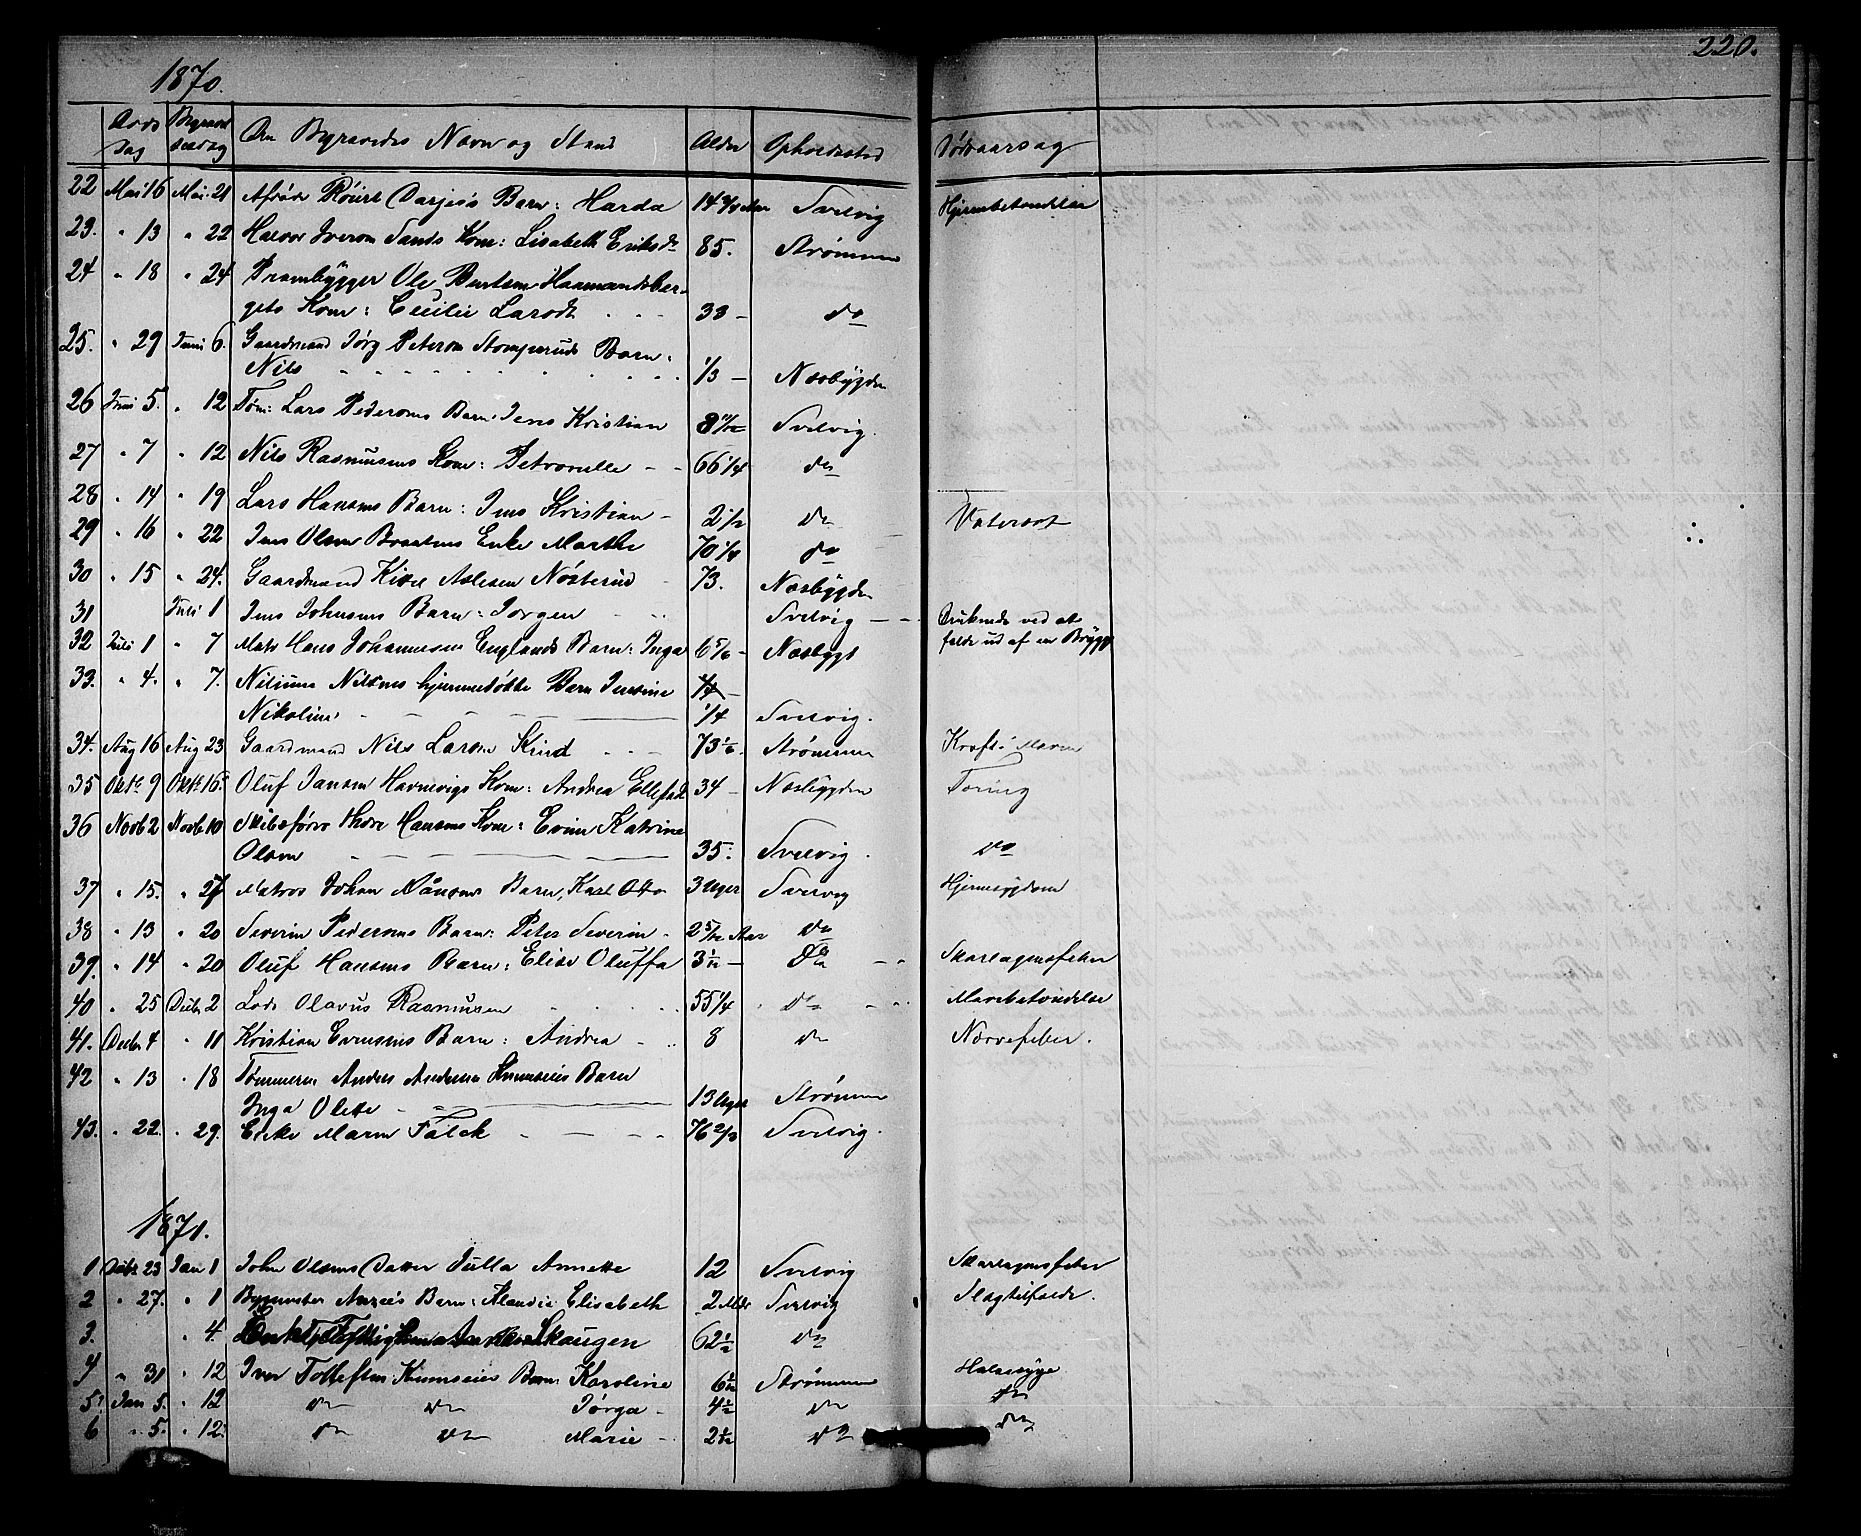 220.
1870.
Døds Dag Begravelsesdag De Begravedes Navn og Stand Alder Opholdssted Dødsaarsag
22 Mai 16 Mai 21 Barn: Harda 14 Svelvig Hjernebetændelse
23. " 13 " 22 Halvor Iversen Sands Kone: Lisabeth Eriksd 85. Strømmen
24 " 18 " 24 Prambygger Ole Berntsen Haamandsber-
gets Kone: Cecilie Larsdt 33 - do
25. " 29 Juni 6. Gaardmand Jørg Petersen Stomperuds Barn:
Nils 1/3 - Nesbygden
26 Juni 5. " 12 Tøm: Lars Pedersens Barn: Jens Kristian 8 11/12 Svelvig.
27 " 7 " 12 Nils Rasmusens Kone: Petronelle - - 66 1/4 do
28 " 14 " 19 Lars Hansens Barn: Jens Kristian - 2 1/2 do Vatersot
29 " 16 " 22 Jens Olsen Braatens Enke Marthe 70 1/4 do
30 " 15 " 24. Gaardmand Aslesen Nøsterud 73. Nesbygden
31 Juli 1 Jens Johnsens Barn: Jørgen Svelvig - - Druknede ved at
falde ud af en Brygge
32 Juli 1 " 7 Mats Hans Johannesen Englands Barn: Inga 6 5/6 - Nesbygd
33. " 4. " 7. Nilsens Barn Josefine
Nikoline 1/4 Svelvig.
34. Aug 16 Aug 23 Gaardmand Nils Larsen 73 1/6. Strømmen Kræft i Maven
35 Okt. 9 Okt. 16. Oluf Jansen Havnevigs Kone: Andrea Ellefsdt 34 - Nesbygden Tæring
36 Novb 2 Novb 10 Skibsfører Thore Hansens Kone: Evine Katrine
Olsen 35. Svelvig. do
37 " 15. " 27 Matros Johan Månsens Barn, Karl Otto 3 Uger Svelvig Hjernesygdom
38 " 13 " 20 Severin Pedersens Barn: Peter Severin - 2 5/12 Aar do
39. " 14 " 20 Oluf Hansens Barn: Elise Oluffa 3 1/12 - do - - Skarlagensfeber
40 " 25 Decbr 2 Lods Olavus Rasmusen 55 1/4 do - Mavebetændelse
41. Decbr 4 " 11 Kristian Evensens Barn: Andrea - 8 do Nervefeber.
42 " 13 " 18 Tømmerm. Anders Andersen Knemseies Barn
Inga Olette 13 Uger Strømmen
43. " 22. " 29. Enke Maren Falck 76 2/3 Svelvig.
1871.
1 Decbr 23 Jan 1 John Olsens Datter Julla Annette 12 Svelvig Skarlagensfeber
2 " 27. " 1 Barn: Klaudie Elisabeth 2 Mdr Svelvig Slagtilfælde.
3. " 4. Skaugen 62 1/2 do
4 " 31 " 12 Iver Tollefsen Knemseies Barn: Karoline 6 1/2 Strømmen Halssyge
5. Jan 5. " 12 do do Jørga - 4 1/2 do do
6 " 5. " 12. do do Marie - 2 1/12 do do